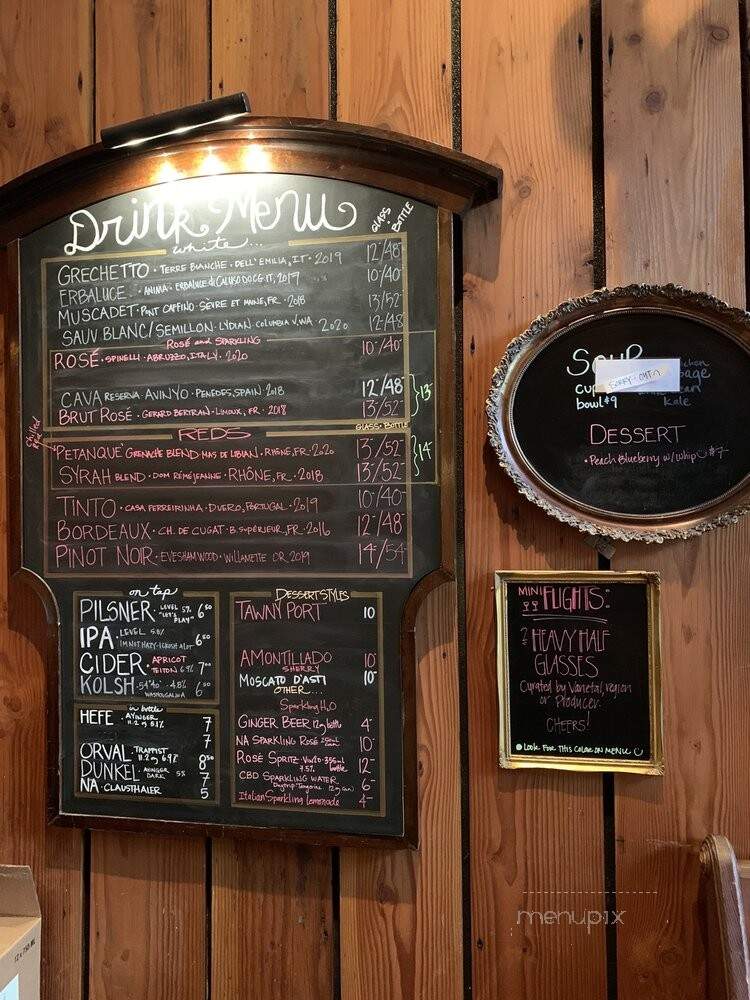 Drink Menu
GLASS · BOTTLE
white...
GRECHETTO · TERRE BIANCHE · DELL'EMILIA, IT · 2019 12/48
ERBALUCE · ANIMA · ERBALUCE di CALUSO DOCG, IT, 2017 10/40
MUSCADET · PONT CAFFINO · SÈVRE ET MAINE, FR · 2018 13/52
SAUV BLANC/SEMILLON · LYDIAN COLUMBIA V, WA 2020 12/48
ROSÉ and SPARKLING
ROSÉ · SPINELLI · ABRUZZO, ITALY · 2020 10/40
CAVA RESERVA · AVINYO · PENEDES, SPAIN 2018 12/48
BRUT ROSÉ · GERARD BERTRAN · LIMOUX, FR · 2018 13/52
13
REDS
GLASS · BOTTLE
chilled
PETANQUE GRENACHE BLEND MAS DE LIBIAN, RHÔNE, FR · 2020 13/52
SYRAH BLEND · DOM RÉMÉJEANNE · RHÔNE, FR · 2018 13/52
14
TINTO · CASA FERREIRINHA · DUERO, PORTUGAL · 2019 10/40
BORDEAUX · CH. DE CUGAT · B. SUPÉRIEUR, FR · 2016 12/48
PINOT NOIR · EVESHAM WOOD · WILLAMETTE OR 2019 14/54
on tap
PILSNER · LEVEL 5% "LET'S PLAY" 6.50
IPA · LEVEL 5.8% I'M NOT HAZY 6.50
CIDER · APRICOT TIETON 6.9% 7.00
KOLSH · 54°40' · 4.8% WASHOUGAL, WA 6.00
in bottle
HEFE · AYINGER 11.2 oz 5.1% 7
7
ORVAL · TRAPPIST 11.2 oz 6.9% 8.50
DUNKEL AYINGER DARK 5% 7
7
NA · CLAUSTHALER 5
DESSERT STYLES
TAWNY PORT 10
AMONTILLADO SHERRY 10
MOSCATO D'ASTI 10
OTHER...
Sparkling H2O
GINGER BEER 12oz bottle 4
NA SPARKLING ROSÉ 250mL can 10
ROSÉ SPRITZ · 355mL 7.5% bottle 12
CBD SPARKLING WATER 6
Daytrip Tangerine 12oz can
Italian Sparkling Lemonade 4
SOUP
SORRY · OUT
cup
bowl $9
kale
DESSERT
· Peach Blueberry w/ Whip $7
MINI FLIGHTS
2 HEAVY HALF
GLASSES
Curated by Varietal, region
or Producer!
CHEERS!
LOOK FOR THIS COLOR ON MENU
menupix
12 x 750 ML